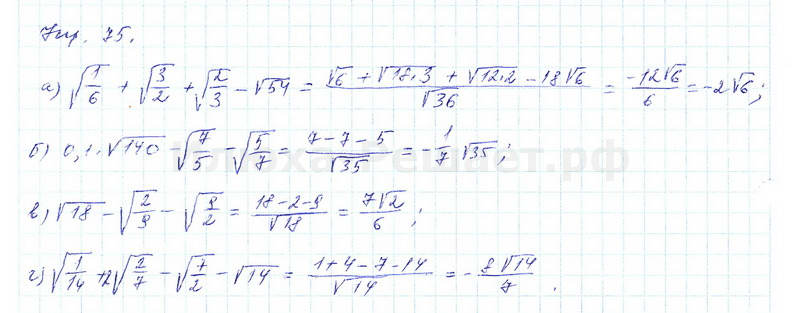 Упр. 75.
а) √(1/6) + √(3/2) + √(2/3) − √54 = (√6 + √(18·3) + √(12·2) − 18√6)/√36 = −12√6/6 = −2√6;
б) 0,1·√140 − √(7/5) − √(5/7) = (7−7−5)/√35 = −1/7 √35;
в) √18 − √(2/9) − √(9/2) = (18−2−9)/√18 = 7√2/6;
г) √(1/14) + 2√(2/7) − √(7/2) − √14 = (1+4−7−14)/√14 = −8√14/7.